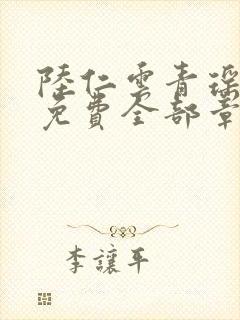 陸仁雲青瑶
免費全部章
李讓平